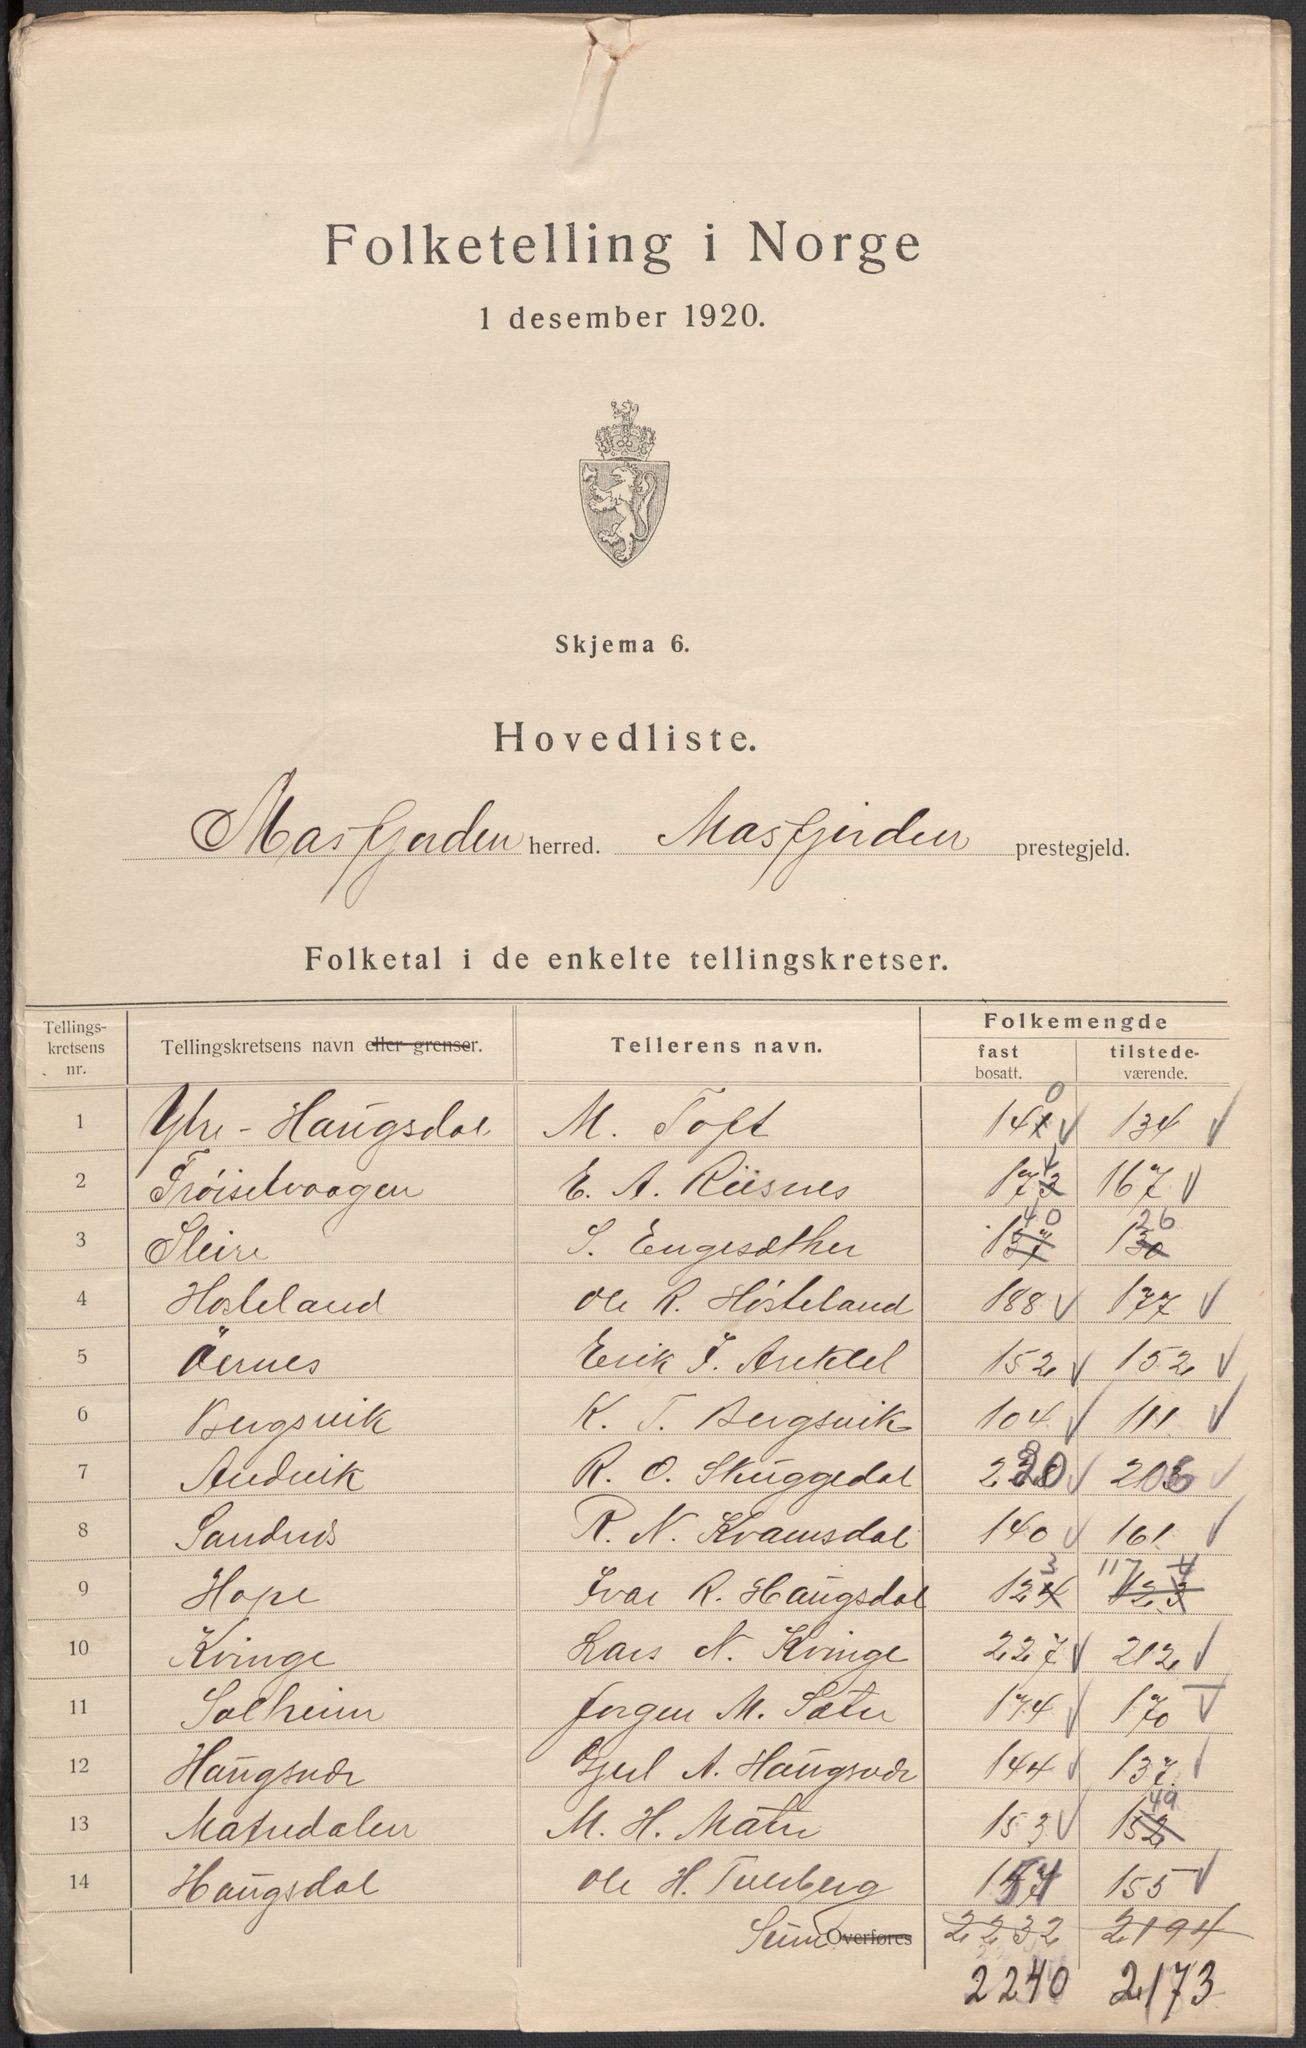 Folketelling i Norge
1 desember 1920.
Skjema 6.
Hovedliste.
Masfjorden herred. Masfjorden prestegjeld.
Folketal i de enkelte tellingskretser.
Tellings-kretsens nr. Tellingskretsens navn eller grenser. Tellerens navn. Folkemengde fast bosatt. tilstede-værende.
1 Ytre-Haugsdal M. Toft 141 0 134
2 Trøiselvaagen E. A. Riisnes 173 167
3 Sleire S. Engesæther 137 40 130 26
4 Hosteland Ole R. Hosteland 188 177
5 Øernes Erik I. Areklet 152 152
6 Bergsvik K. T. Bergsvik 104 111
7 Andvik R. O. Skuggedal 220 206
8 Sandnes R. N. Kvamsdal 140 161
9 Hope Ivar R. Haugsdal 124 3 123 117
10 Kvinge Lars N. Kvinge 227 212
11 Solheim Jørgen M. Sætre 174 170
12 Haugsvær A. Haugsvær 144 137
13 Matredalen M. H. Matre 153 152 49
14 Haugsdal Ole H. Tverberg 154 155
Sum Overføres 2232 2194
2240 2173